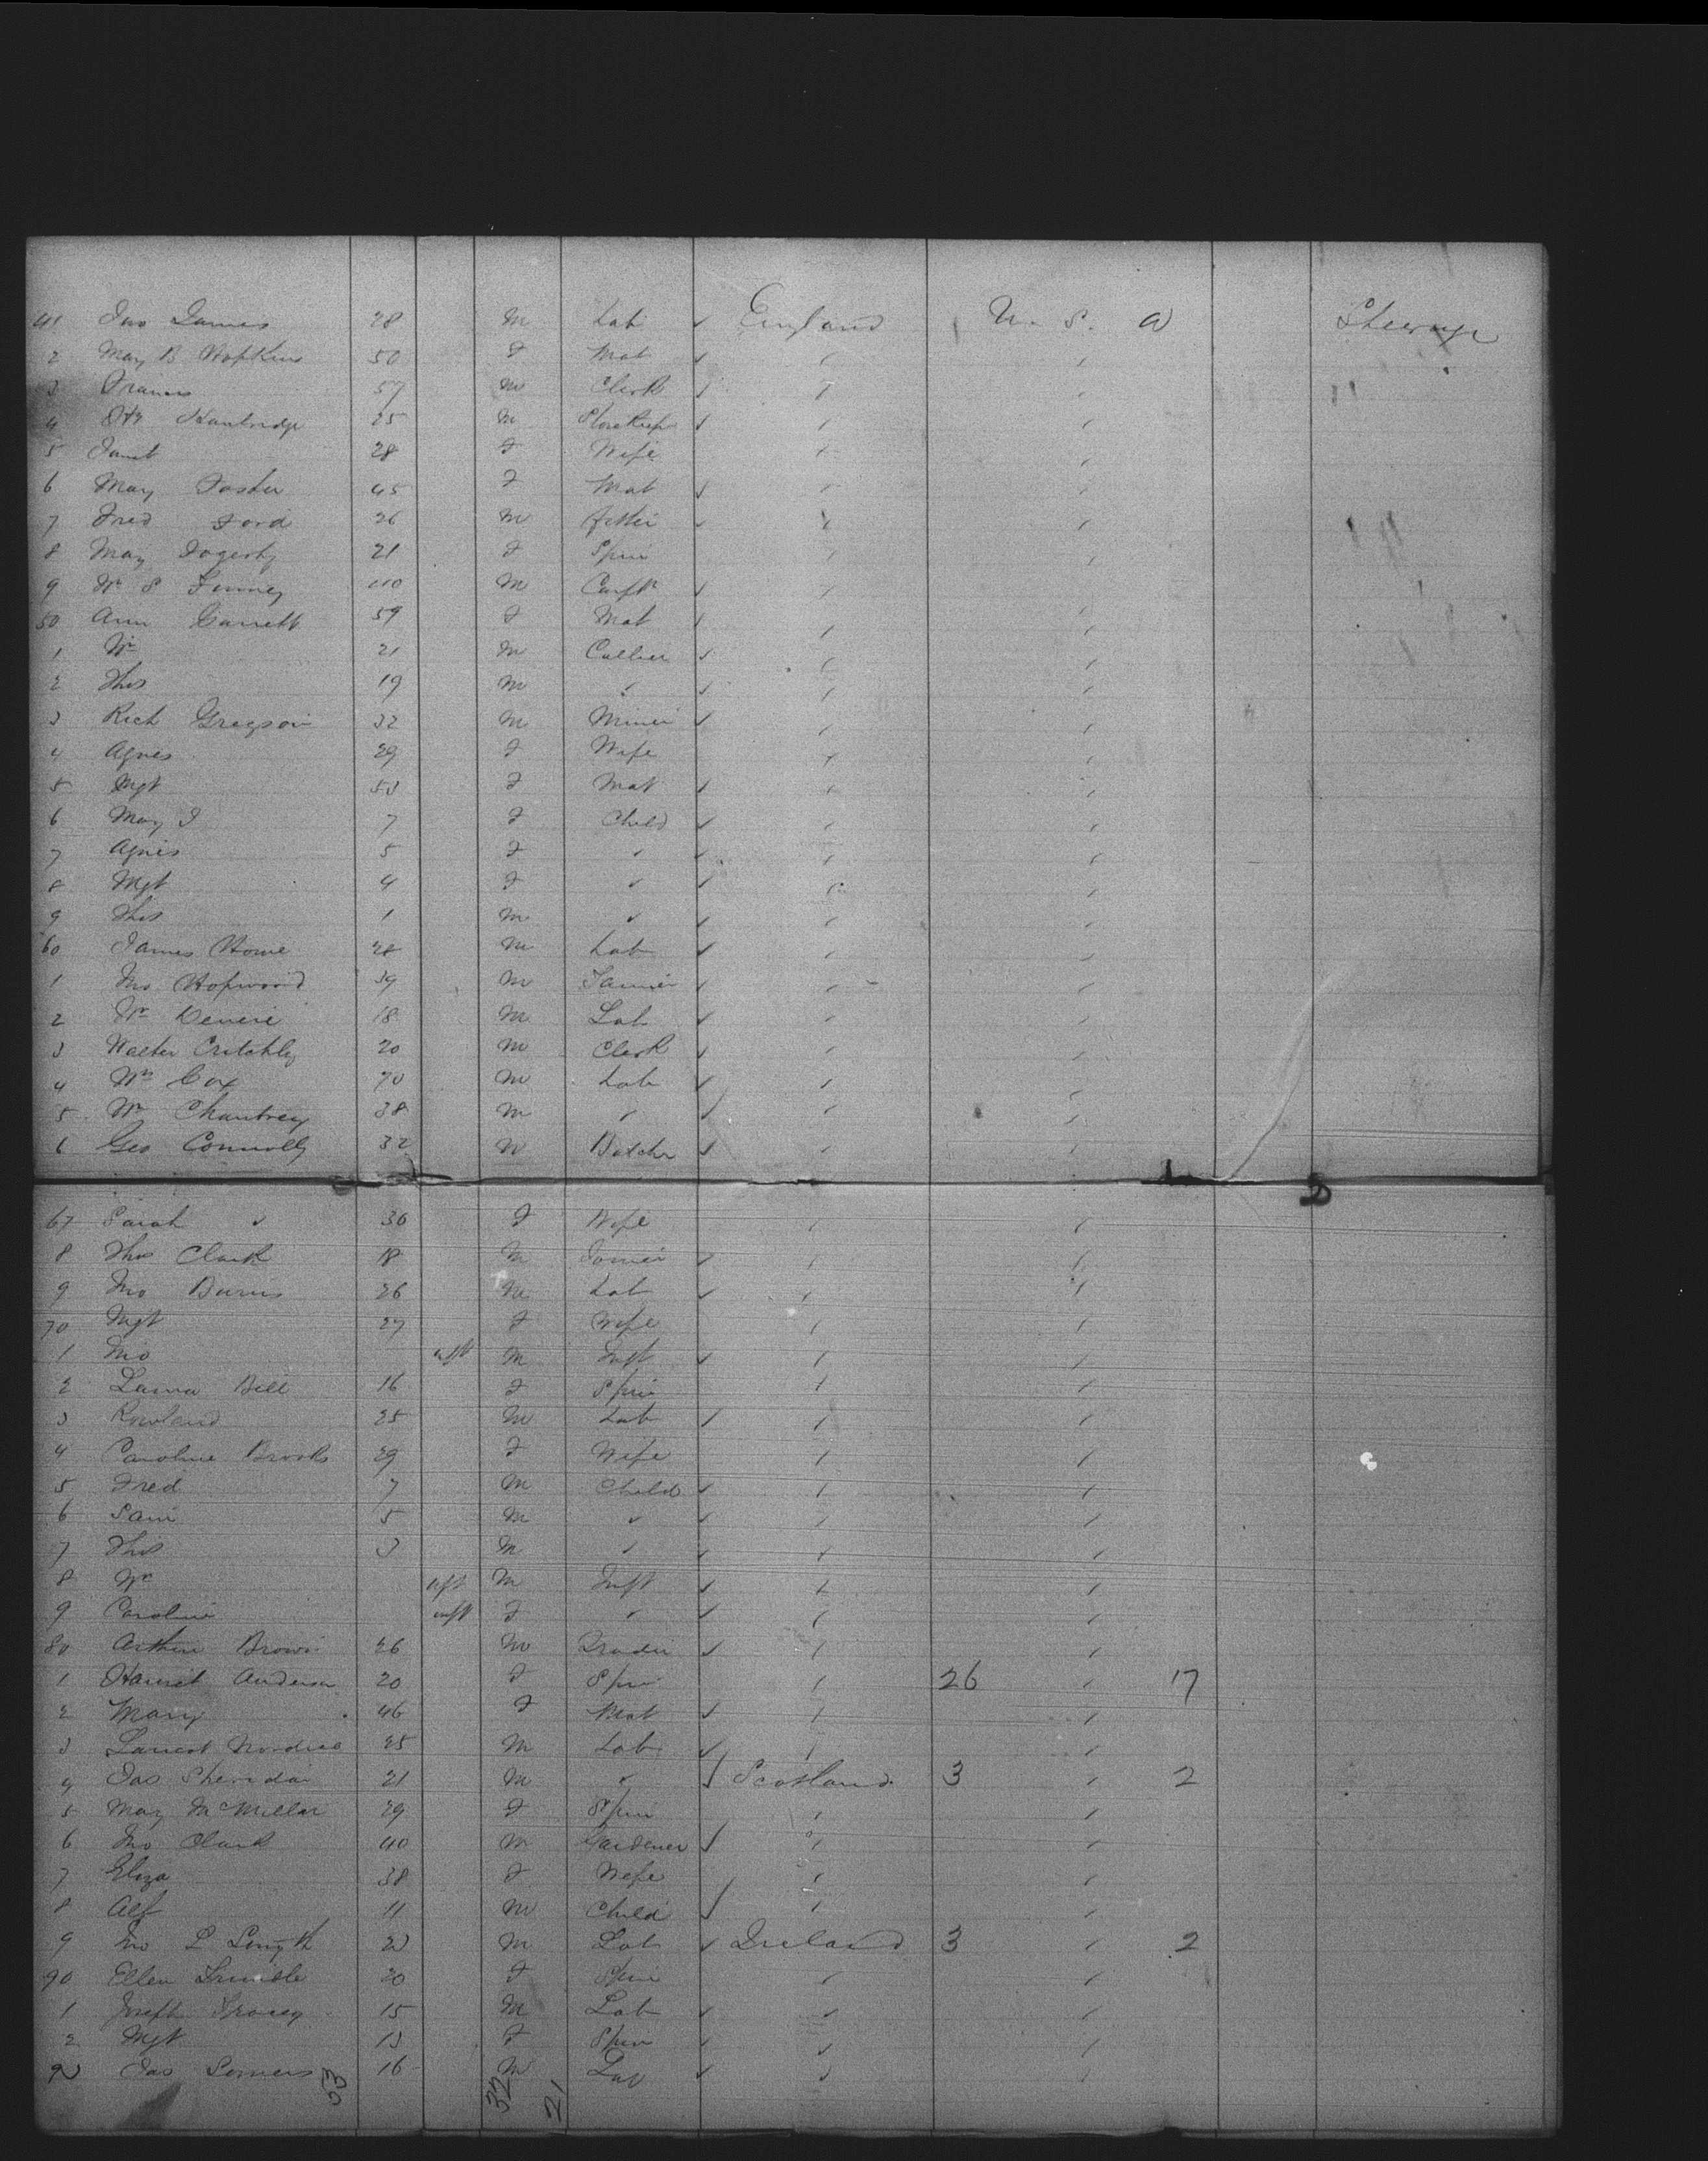 41 Jno James 28 M Lab ✓ England U. S. A Steerage
2 Mary B Hopkins 50 F Mat ✓
3 Francis 57 M Clerk ✓
4 25 M Storekeep ✓
5 Janet 28 F Wife
6 Mary Foster 45 F Mat ✓
7 Fred Ford 26 M Fitter ✓
8 Mary Fogerty 21 F Spin
9 Wm S Finney 40 M Carptr ✓
50 Ann Garrett 59 F Mat ✓
1 Wm 21 M Collier ✓
2 Thos 19 M ✓
3 Rich Gregson 32 M Miner ✓
4 Agnes 29 F Wife
5 Mgt 50 F Mat ✓
6 Mary J 7 F Child ✓
7 Agnes 5 F ✓
8 Mgt 4 F ✓
9 Thos 1 M ✓
60 James Howe 28 M Lab ✓
1 Jno Hopwood 39 M ✓
2 Wm 18 M Lab ✓
3 Walter Critchly 20 M Clerk ✓
4 Wm Cox 70 M Lab ✓
5 Wm Chantrey 38 M ✓
6 Geo Connolly 32 M Butcher ✓
67 Sarah 36 F Wife
8 Thos Clark 18 M Joiner ✓
9 Jno Burns 26 M Lab ✓
70 Mgt 27 F Wife
1 Jno inft M Inft ✓
2 Laura Bell 16 F Spin
3 Rowland 25 M Lab ✓
4 Caroline Brooks 29 F Wife
5 Fred 7 M Child ✓
6 Sam 5 M ✓
7 Thos 3 M ✓
8 Wm inft M Inft ✓
9 Caroline inft F ✓
80 Arthur Brown 26 M ✓
1 Harriet Anderson 20 F Spin 26 17
2 Mary 46 F Mat ✓
3 25 M Lab ✓
4 Jas Sheridan 21 M Scotland 3 2
5 Mary McMillan 29 F Spin
6 Jno Clark 40 M Gardener
7 Eliza 38 F Wife
8 Alf 11 M Child
9 Jno L Smyth 23 M Lab ✓ Ireland 3 2
90 Ellen Trimble 20 F Spin
1 Joseph 15 M Lab ✓
2 Mgt 13 F Spin ✓
93 Jas Somers 16 M Lab ✓
53 32 21